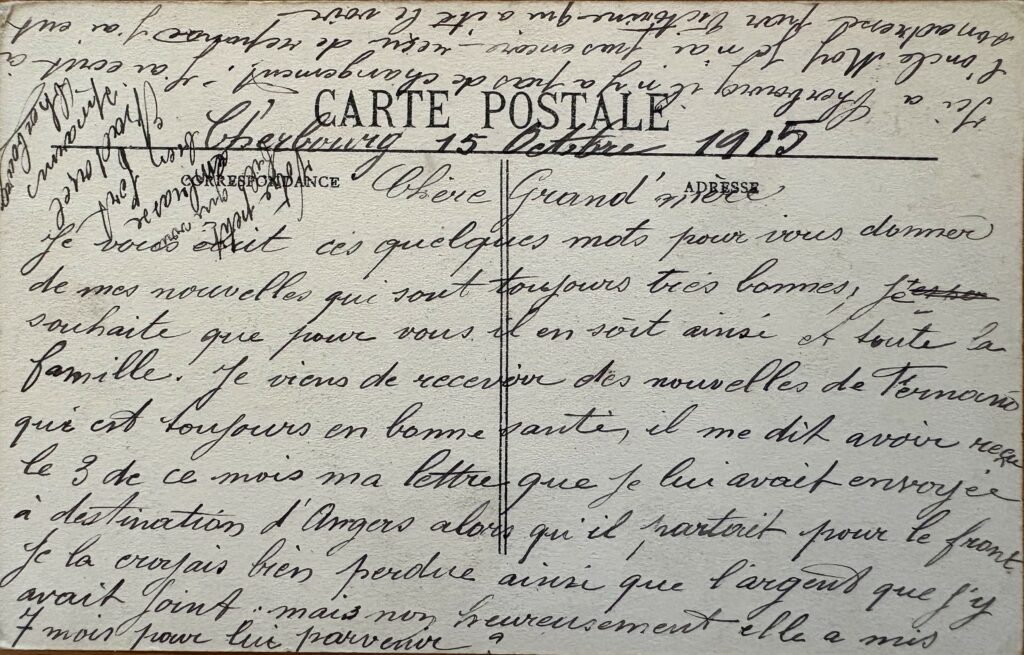 CARTE POSTALE
Cherbourg 15 Octobre 1915
CORRESPONDANCE
ADRESSE
Chère Grand'mère
Je vous écrit ces quelques mots pour vous donner
de mes nouvelles qui sont toujours très bonnes, je
souhaite que pour vous il en soit ainsi et toute la
famille. Je viens de recevoir des nouvelles de Fernand
qui est toujours en bonne santé, il me dit avoir reçu
le 3 de ce mois ma lettre que je lui avait envoyée
à destination d'Angers alors qu'il partait pour le front.
Je la croyais bien perdue ainsi que l'argent que j'y
avait joint. mais non heureusement elle a mis
7 mois pour lui parvenir.
Ici a Cherbourg il n'y a pas de changement. J'ai écrit à
l'oncle je n'ai pas encore reçu de réponse j'ai eut
son adresse par Victorine qui a été le voir
Votre petit
fils qui vous
embrasse
bien fort